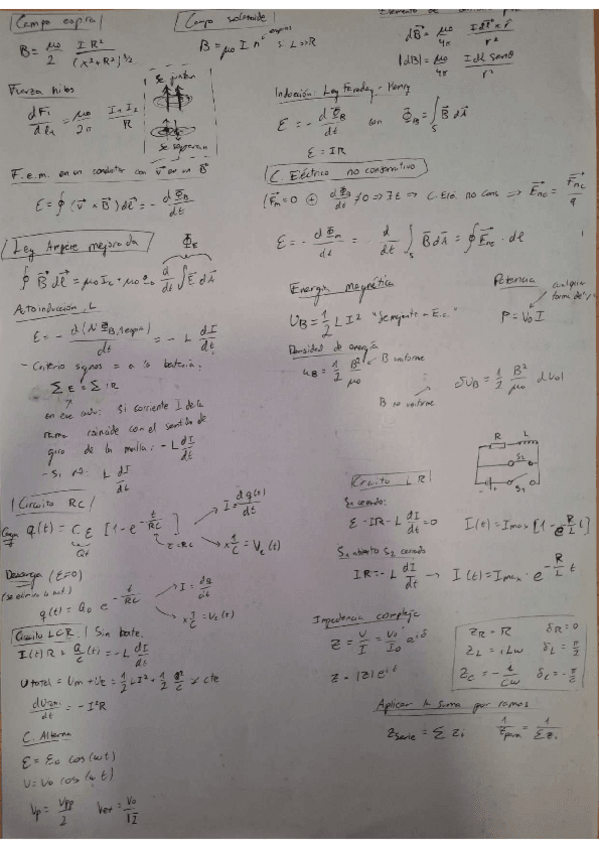 Campo espira
B = μ₀/2 · I R² / (x²+R²)^(3/2)
Campo solenoide
B = μ₀ I n
espiras
si L>>R
dB⃗ = μ₀/4π · I dl⃗ × r̂ / r²
|dB| = μ₀/4π · I dl senθ / r²
Fuerza hilos
dF₁/dl₂ = μ₀/2π · I₁ I₂ / R
se juntan
se separan
Inducción: Ley Faraday - Henry
ε = - dΦ_B/dt con Φ_B = ∫_S B⃗ dA⃗
ε = IR
F.e.m. en un conductor con v⃗ en un B⃗
ε = ∮ (v⃗ × B⃗) dl⃗ = - dΦ_B/dt
C. Eléctrico no conservativo
(F⃗m = 0 ⊕ dΦ_B/dt ≠ 0 ⇒ ∃ε ⇒ C. Elé. no Cons ⇒ E⃗nc = F⃗nc/q
ε = - dΦm/dt = - d/dt ∫_S B⃗ dA⃗ = ∮ E⃗nc · dl
Ley Ampère mejorada
Φ_E
∮ B⃗ dl⃗ = μ₀ Ic + μ₀ ε₀ d/dt ∫ E⃗ dA⃗
Autoinducción, L
ε = - d(N Φ_B,1espira)/dt = - L dI/dt
- Criterio signos = a la batería.
Σ ε = Σ IR
en ese caso: Si corriente I de la
rama coincide con el sentido de
giro de la malla: - L dI/dt
- Si no: L dI/dt
Energía magnética
U_B = 1/2 L I² "Semejante a E.c."
Densidad de energía
u_B = 1/2 B²/μ₀
B uniforme
B no uniforme
dU_B = 1/2 B²/μ₀ dVol
Potencia
cualquier
P = V₀ I
Circuito RC
Carga
q(t) = C ε [1 - e^(-t/RC)]
Qf
τ = RC
I = dq(t)/dt
× 1/C = Vc(t)
Descarga (ε=0)
q(t) = Q₀ e^(-t/RC)
I = dq/dt
× 1/C = Vc(t)
R
L
S₂
S₁
Circuito LR
S₁ cerrado:
ε - IR - L dI/dt = 0
I(t) = Imax [1 - e^(-R/L t)]
S₁ abierto S₂ cerrado
IR = - L dI/dt → I(t) = Imax · e^(-R/L t)
Circuito LCR Sin bate.
I(t) R + Q/C (t) = - L dI/dt
U total = Um + Ue = 1/2 L I² + 1/2 Q²/C ≠ cte
dU/dt = - I² R
C. Alterna
ε = ε₀ cos(ωt)
V = V₀ cos(ωt)
Vp = Vpp/2 Vef = V₀/√2
Impedancia compleja
Z = V/I = V₀/I₀ e^(iδ)
Z = |Z| e^(iδ)
Z_R = R δ_R = 0
Z_L = iLω δ_L = π/2
Z_C = - i/Cω δ_C = - π/2
Aplicar la suma por ramos
Z serie = Σ Zi 1/Z para = 1/Σ Zi